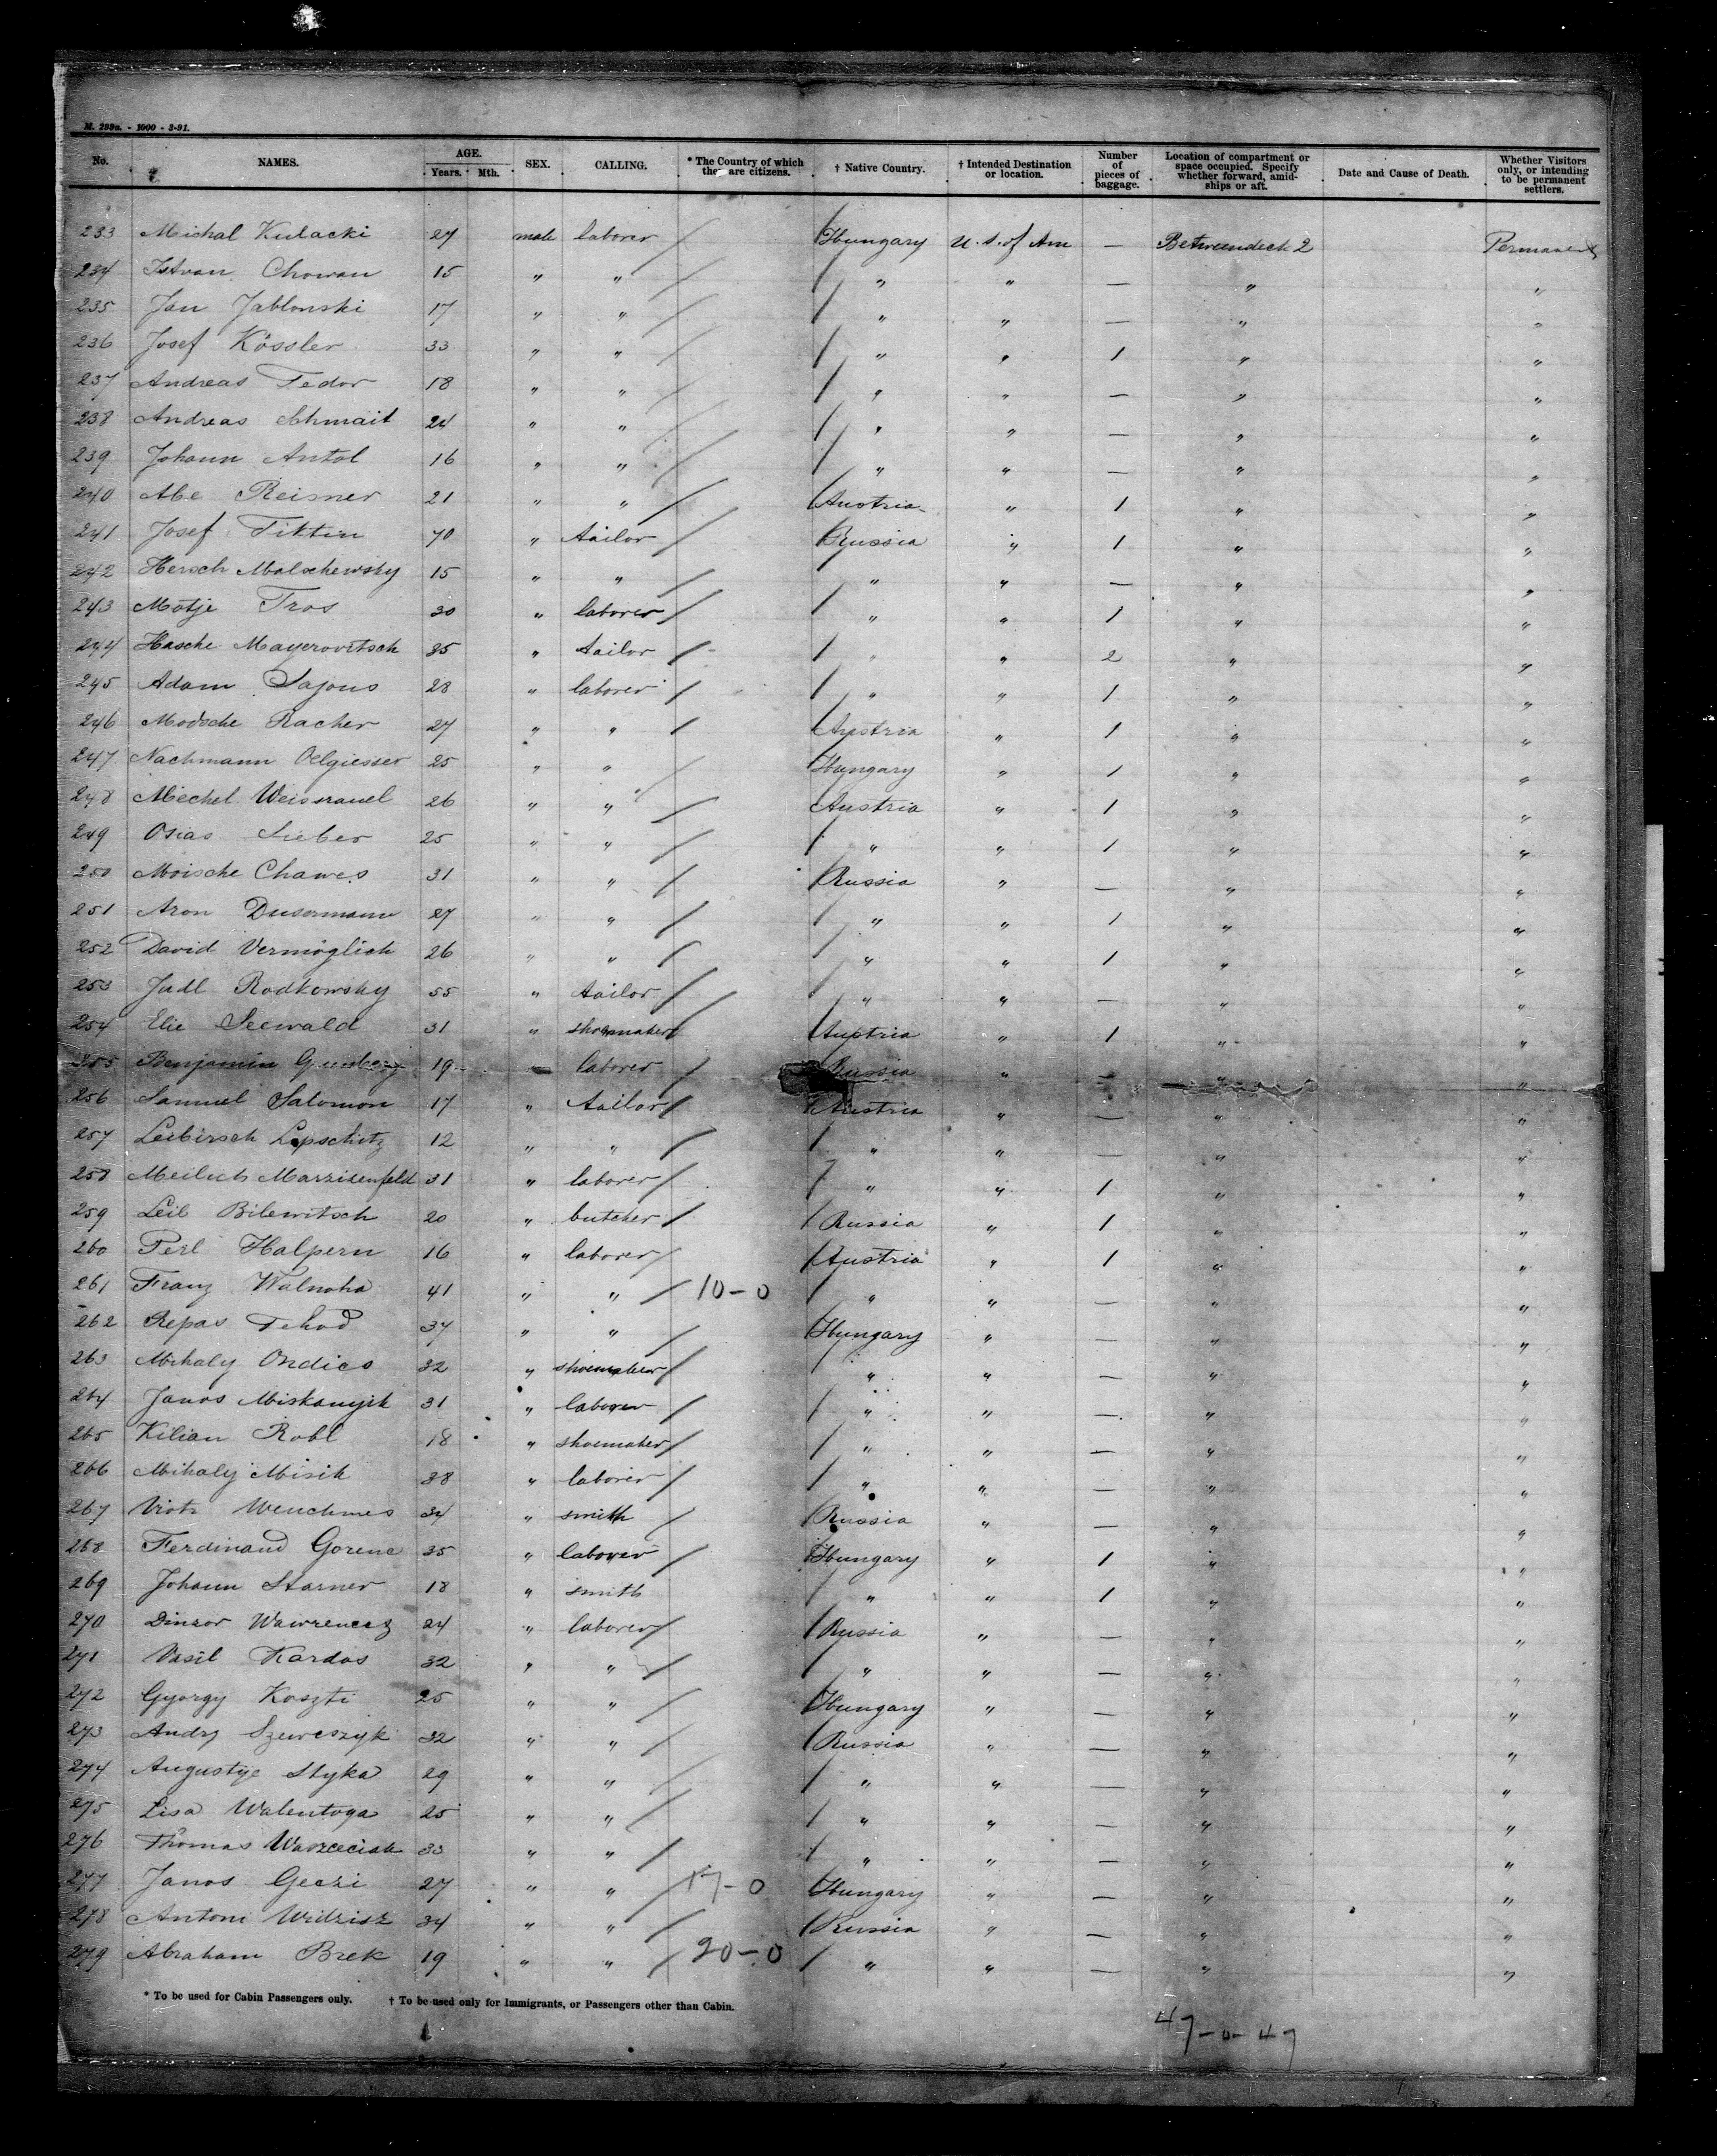 M. 299a. - 1000 - 3-91.
No. NAMES. AGE. Years. Mth. SEX. CALLING. * The Country of which they are citizens. † Native Country. † Intended Destination or location. Number of pieces of baggage. Location of compartment or space occupied. Specify whether forward, amidships or aft. Date and Cause of Death. Whether Visitors only, or intending to be permanent settlers.
233 Michal Kulacki 27 male laborer / Hungary U. S. of Am — Betweendeck 2 Permanent
234 Istvan Chowan 15 " " / " " — " "
235 Jan Jablonski 17 " " / " " — " "
236 Josef Kössler 33 " " / " " 1 " "
237 Andreas Fedor 18 " " / " " — " "
238 Andreas Schmait 24 " " / " " — " "
239 Johann Antol 16 " " / " " — " "
240 Abe Reisner 21 " " / Austria " 1 " "
241 Josef Tiktin 70 " tailor / Russia " 1 " "
242 Hersch Malschewsky 15 " " / " " — " "
243 Motje Tros 30 " laborer / " " 1 " "
244 Hasche Mayerovitsch 35 " tailor / " " 2 " "
245 Adam Sajous 28 " laborer / " " 1 " "
246 Modsche Racher 27 " " / Austria " 1 " "
247 Nachmann Oelgiesser 25 " " / Hungary " 1 " "
248 Mechel 26 " " / Austria " 1 " "
249 Osias Sieber 25 " " / " " 1 " "
250 Moische Chawes 31 " " / Russia " — " "
251 Aron Dusermann 27 " " / " " 1 " "
252 David Vermöglich 26 " " / " " 1 " "
253 Judl Rodkowsky 55 " tailor / " " — " "
254 Elie Seewald 31 " shoemaker / Austria " 1 " "
255 Benjamin 19 " laborer / Russia " — " "
256 Samuel Salomon 17 " tailor / Austria " — " "
257 Leibirsch Lipschutz 12 " " / " " — " "
258 Meilech Marzisenfeld 31 " laborer / " " 1 " "
259 Leib Bilewitsch 20 " butcher / Russia " 1 " "
260 Perl Halpern 16 " laborer / Austria " 1 " "
261 Franz Walnoha 41 " " / 10-0 " " — " "
262 Repas Tehod 37 " " / Hungary " — " "
263 Mihaly Ondics 32 " shoemaker / " " — " "
264 Janos Miskanyik 31 " laborer / " " — " "
265 Kilian Robl 18 " shoemaker / " " — " "
266 Mihaly Misik 38 " laborer / " " — " "
267 Wenchmes 34 " smith / Russia " — " "
268 Ferdinand Gorenc 35 " laborer / Hungary " 1 " "
269 Johann Starner 18 " smith " " 1 " "
270 Dinzor Wawrencez 24 " laborer / Russia " — " "
271 Vasil Kardos 32 " " / " " — " "
272 Gyorgy Koszti 25 " " / Hungary " — " "
273 Andrz Szewczyk 32 " " / Russia " — " "
274 Augustye Styka 29 " " / " " — " "
275 Lisa Walentoga 25 " " / " " — " "
276 Thomas Warzeciak 33 " " / " " — " "
277 Janos Geczi 27 " " / 17-0 Hungary " — " "
278 Antoni Widzisz 34 " " / Russia " — " "
279 Abraham Brek 19 " " / 20-0 " " — " "
* To be used for Cabin Passengers only. † To be used only for Immigrants, or Passengers other than Cabin.
47-0-47